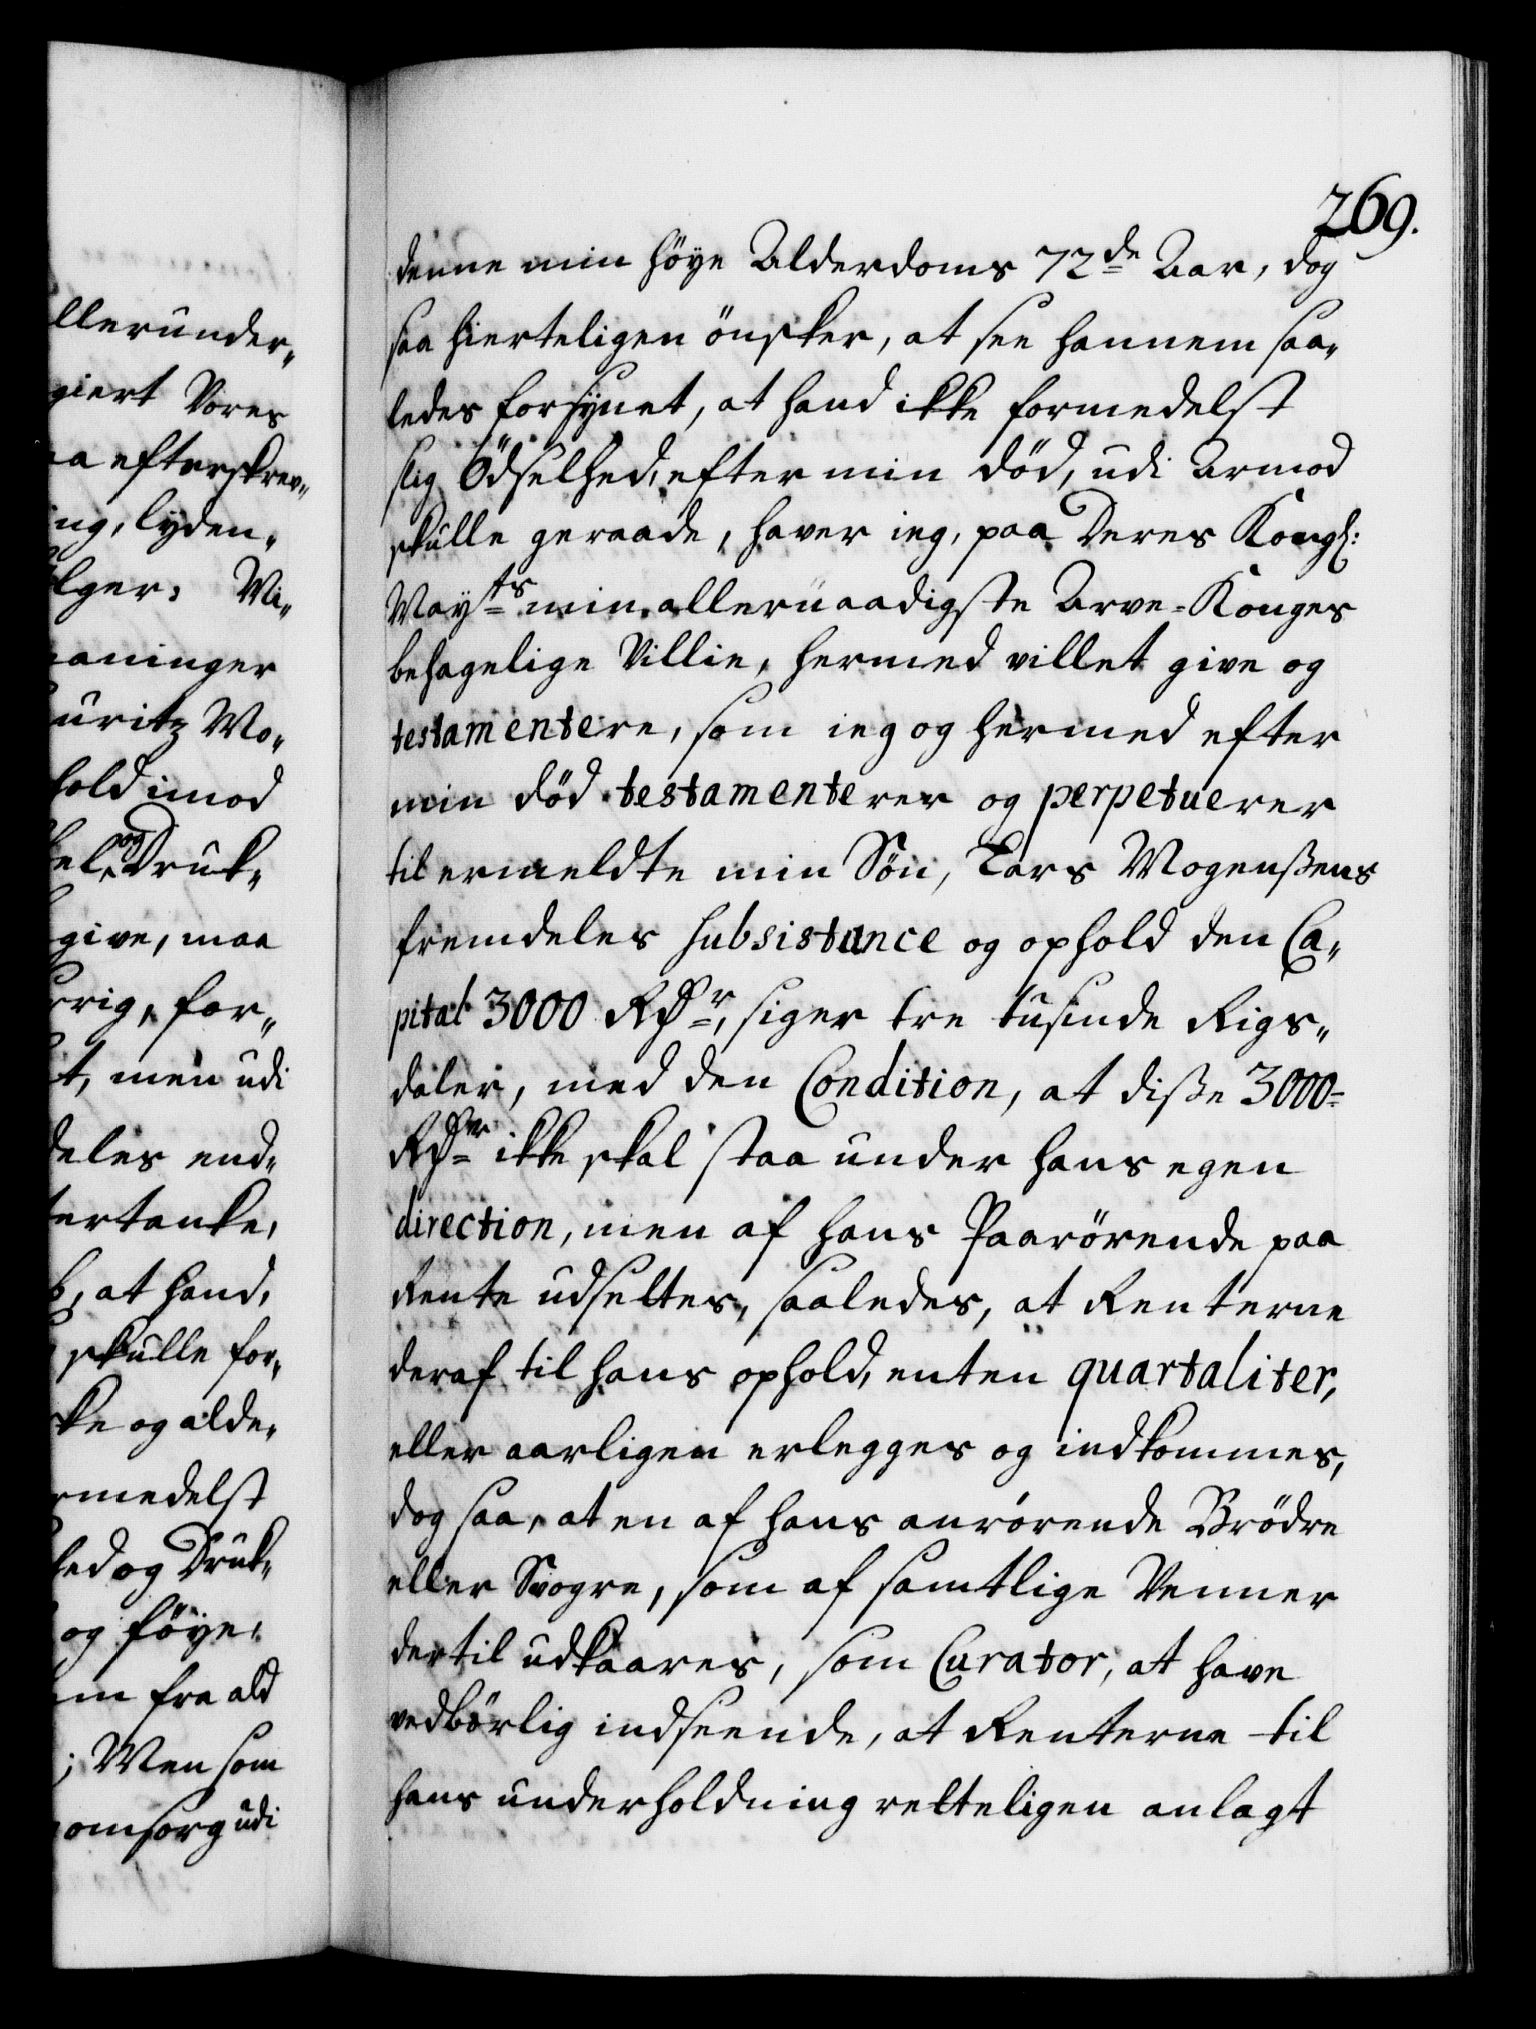 llerunder„
giert Vores
a efterskrev„
ng, lyden„
lger: Mi„
maninger
uritz Mo„
hold imod
kel, og Druk„
give, maa
rrig, for„
t, men udi
deles end„
tertanke,
b, at hand,
skulle for„
ke og alde„
rmedelst
hed og Druk„
og føye,
em fra ald
; Men som
omsorg udi
269.
denne min høye Alderdoms 72de Aar, dog
saa hierteligen ønsker, at see hannem saa„
ledes forsynet, at hand ikke formedelst
slig Ødselhed, efter min død, udi Armod
skulle geraade, haver ieg, paa Deres Kongl:
Mayts min allernaadigste Arve-Konges
behagelige Villie, hermed villet give og
testamentere, som ieg og hermed efter
min død testamenterer og perpetuerer
til ermeldte min Søn, Lars Mogenßens
fremdeles subsistance og ophold den Ca„
pital 3000 Rdr, siger tre tusinde Rigs„
daler, med den Condition, at diße 3000=
Rdr ikke skal staa under hans egen
direction, men af hans Paarørende paa
Rente udsettes, saaledes, at Renterne
deraf til hans ophold, enten quartaliter,
eller aarligen erlegges og indkommes,
dog saa, at en af hans anrørende Brødre
eller Svogre, som af samtlige Venner
dertil udkaares, som Curator, at have
vedbørlig indseende, at Renterne til
hans underholdning retteligen anlagt